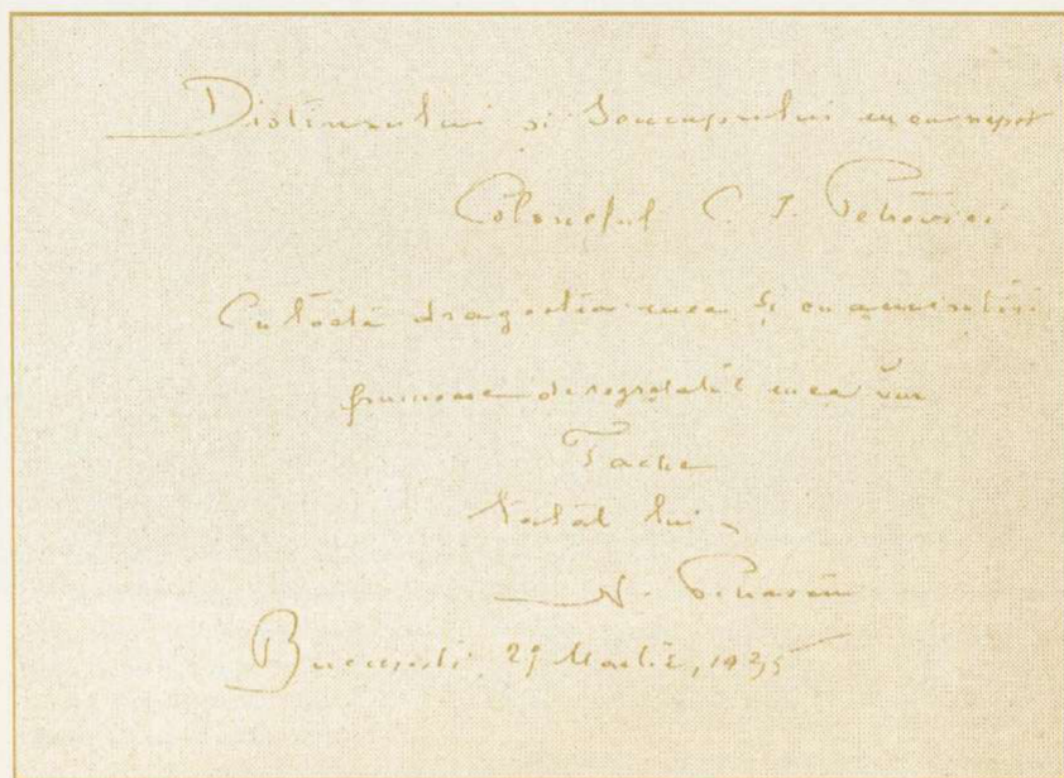 Distinsului și Scumpului meu nepot
Colonelul C. I. Petrovici
Cu toată dragostea mea și cu amintiri
frumoase de regretatul meu văr
Tache
tatăl lui
N.
București 29 Martie, 1935